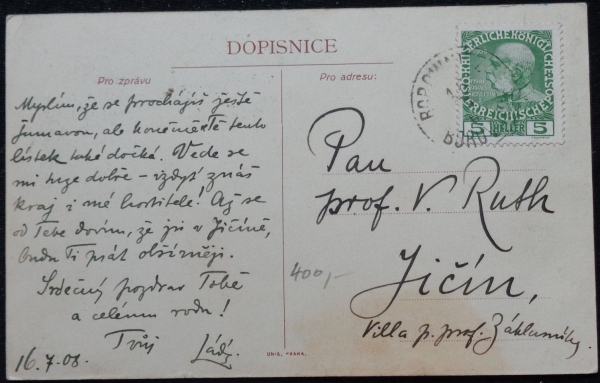 DOPISNICE
Pro zprávu
Myslím, že se procházíš ještě
Šumavou, ale konečně Tě tento
lístek také dočká. Vede se
mi zde dobře – vždyť znáš
kraj i mé hostitele! Až se
od Tebe dovím, že jsi v Jičíně,
budu Ti psát obšírněji.
Srdečný pozdrav Tobě
a celému rodu!
Tvůj Láďa
16.7.08.
Pro adresu:
Pan
prof. V. Ruth
Jičín,
Villa p. prof. Záklasníka.
400,-
UNIE, PRAHA.
KAISERLICHE KÖNIGLICHE
ÖSTERREICHISCHE POST
5 HELLER 5